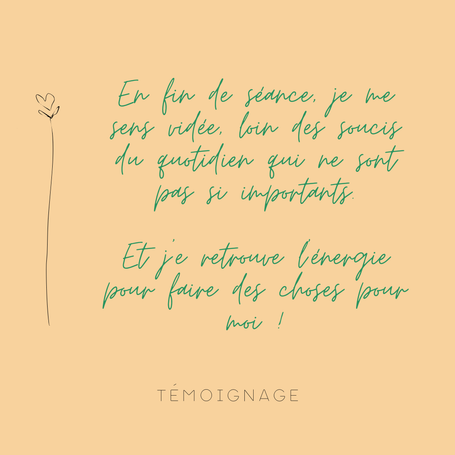 En fin de séance, je me
sens vidée, loin des soucis
du quotidien qui ne sont
pas si importants.
Et j'e retrouve l'énergie
pour faire des choses pour
moi !
TÉMOIGNAGE